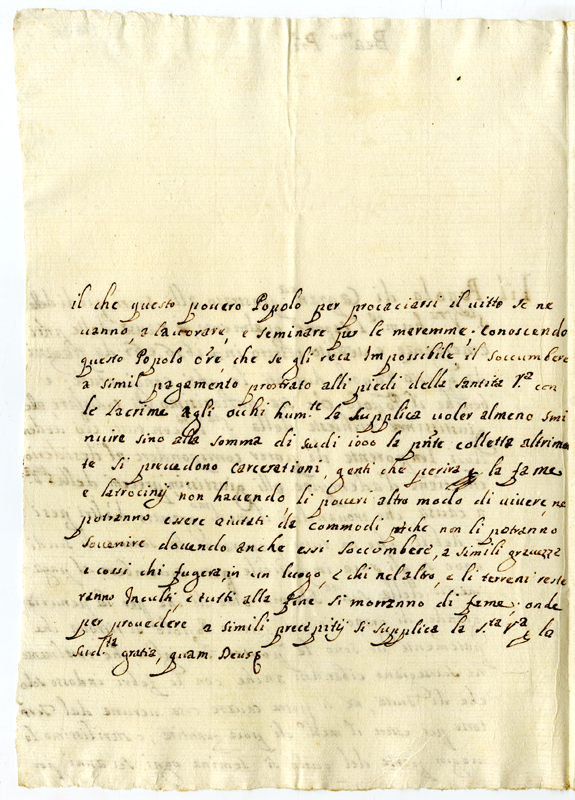 il che questo povero Popolo per procaciarsi il vitto se ne
vanno, a lavorare, e seminare per le maremme; Conoscendo
questo Popolo o're, che se gli reca Impossibile il soccumbere
a simil pagamento prostrato alli piedi della Santità V.ª con
le lacrime agli ochi hum.te la supplica voler almeno smi
nuire sino alla somma di scudi 1000 la pn'te colletta altrimen
te si prevedono carcerationi, genti che perirà p la fame
e latrocinij non havendo, li poveri altro modo di vivere, ne
potranno essere aiutati, da Commodi p'che non li potranno
sovenire dovendo anche essi soccombere, a simili gravezze
e cossi chi fugera, in un luogo, e chi nel'altro, e li terreni reste
ranno Inculti, e tutti alla fine si morranno di fame; onde
per provedere a simili precipitij si supplica la S.ta V.ª p la
sud.ta gratia, quam Deus